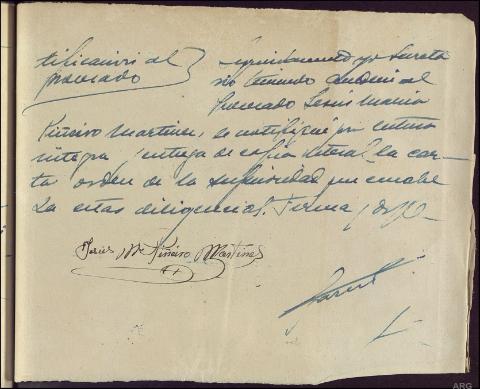 tificación al
procesado
Seguidamente yo Secreta
rio teniendo al
procesado Jesús María
Piñeiro Martinez, le notifiqué por lectura
integra y entrega de copia literal la car-
ta orden de la superioridad que encabe
za estas diligencias. Firma y doy fe
Jesús Mª Piñeiro Martinez
ARG